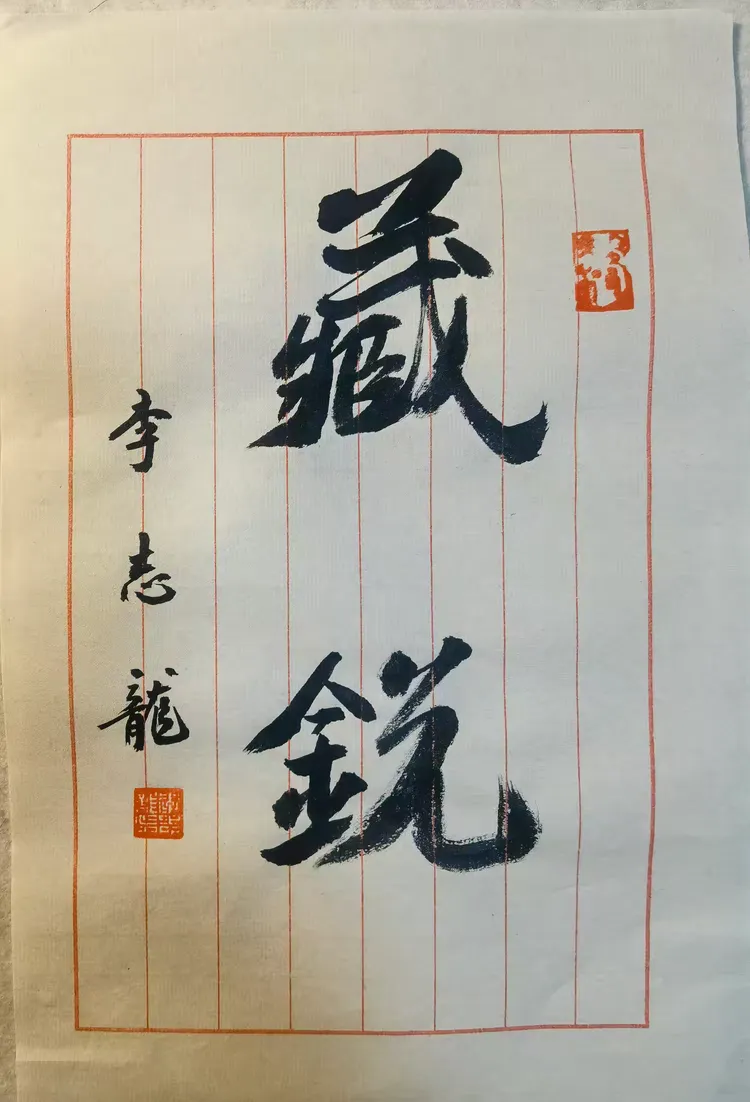 藏鋭
李志龍